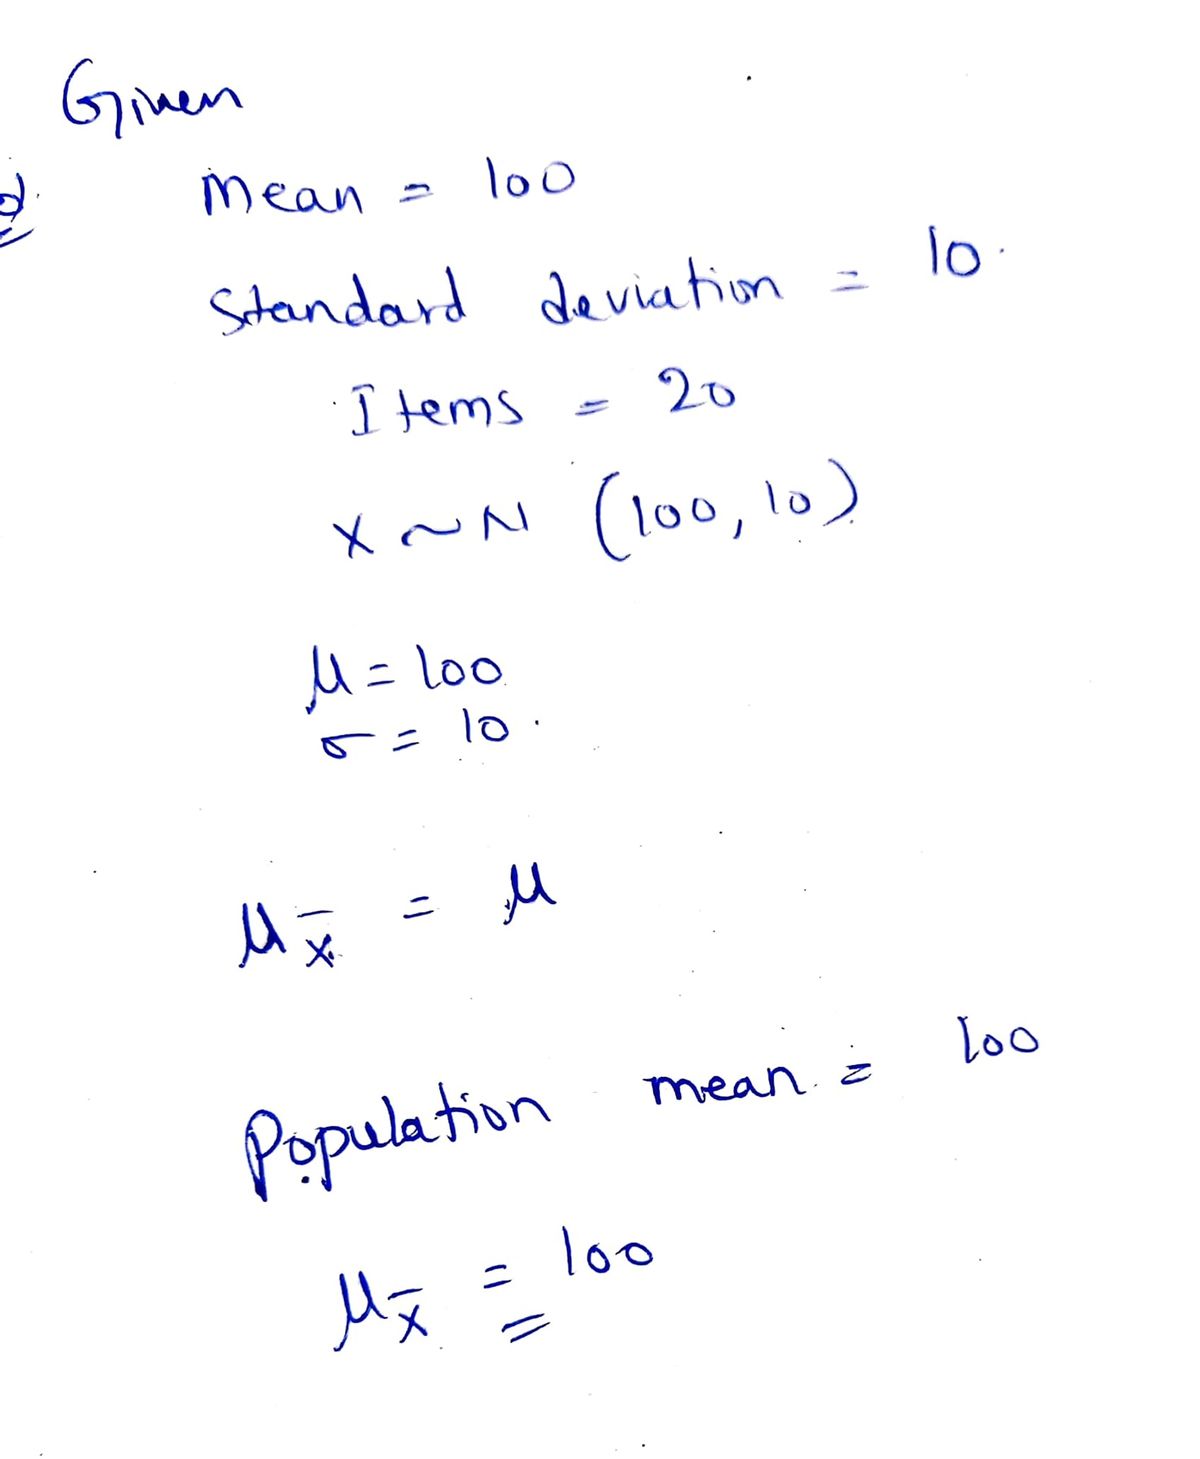 Given
Mean = 100
Standard deviation = 10.
Items = 20
X ~ N (100, 10)
μ = 100
σ = 10.
μx̄ = μ
Population mean = 100
μx̄ = 100